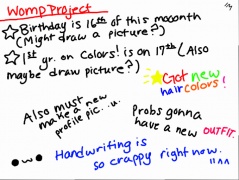 Womp Project
Birthday is 16th of this mooonth
(Might draw a picture?)
1st yr. on Colors! is on 17th (Also
maybe draw picture?)
Got new
hair colors!
Also must
make a new
profile pic. . .u.
Probs gonna
have a new OUTFIT.
Handwriting is
so crappy right now.